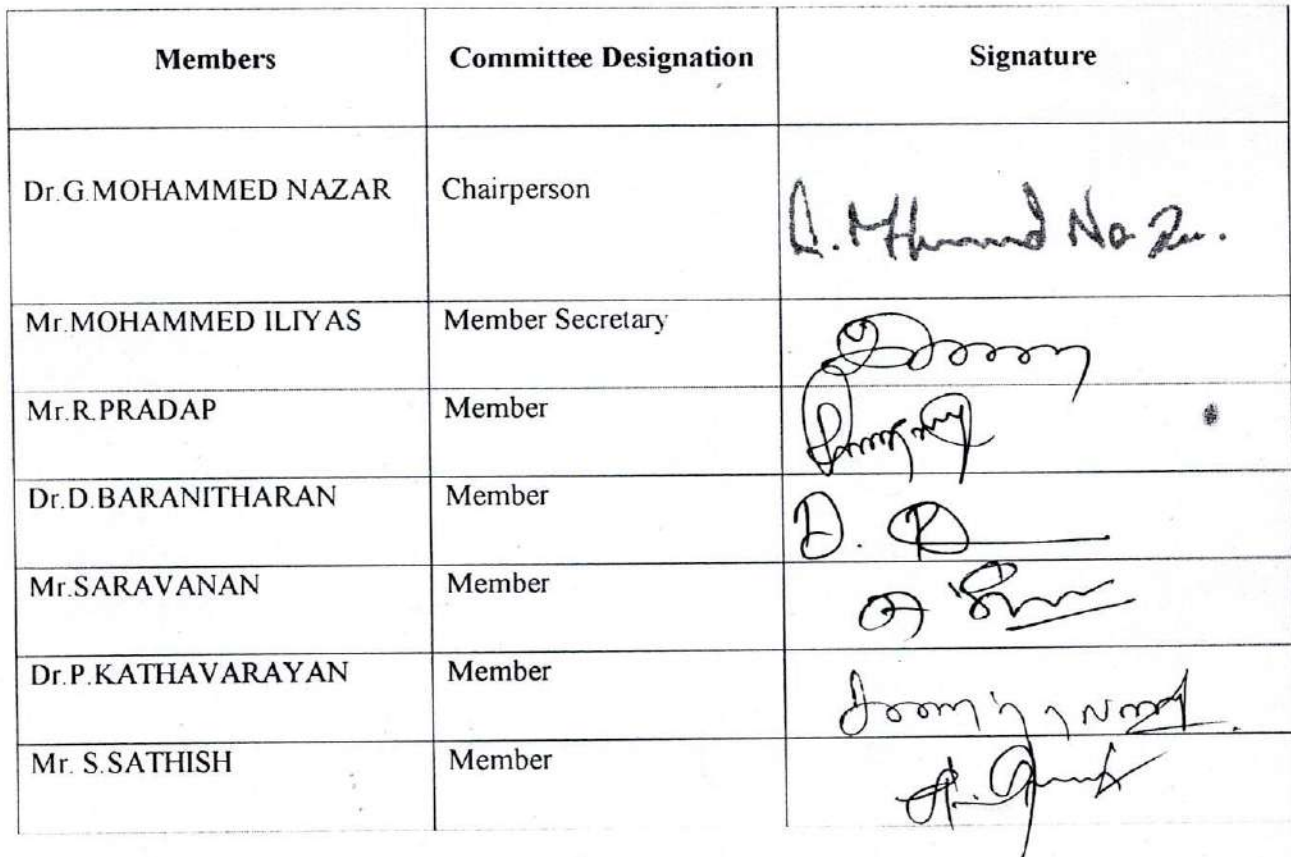 Members Committee Designation Signature
Dr.G.MOHAMMED NAZAR Chairperson
Mr.MOHAMMED ILIYAS Member Secretary
Mr.R.PRADAP Member
Dr.D.BARANITHARAN Member
D.
Mr.SARAVANAN Member
Dr.P.KATHAVARAYAN Member
Mr. S.SATHISH Member